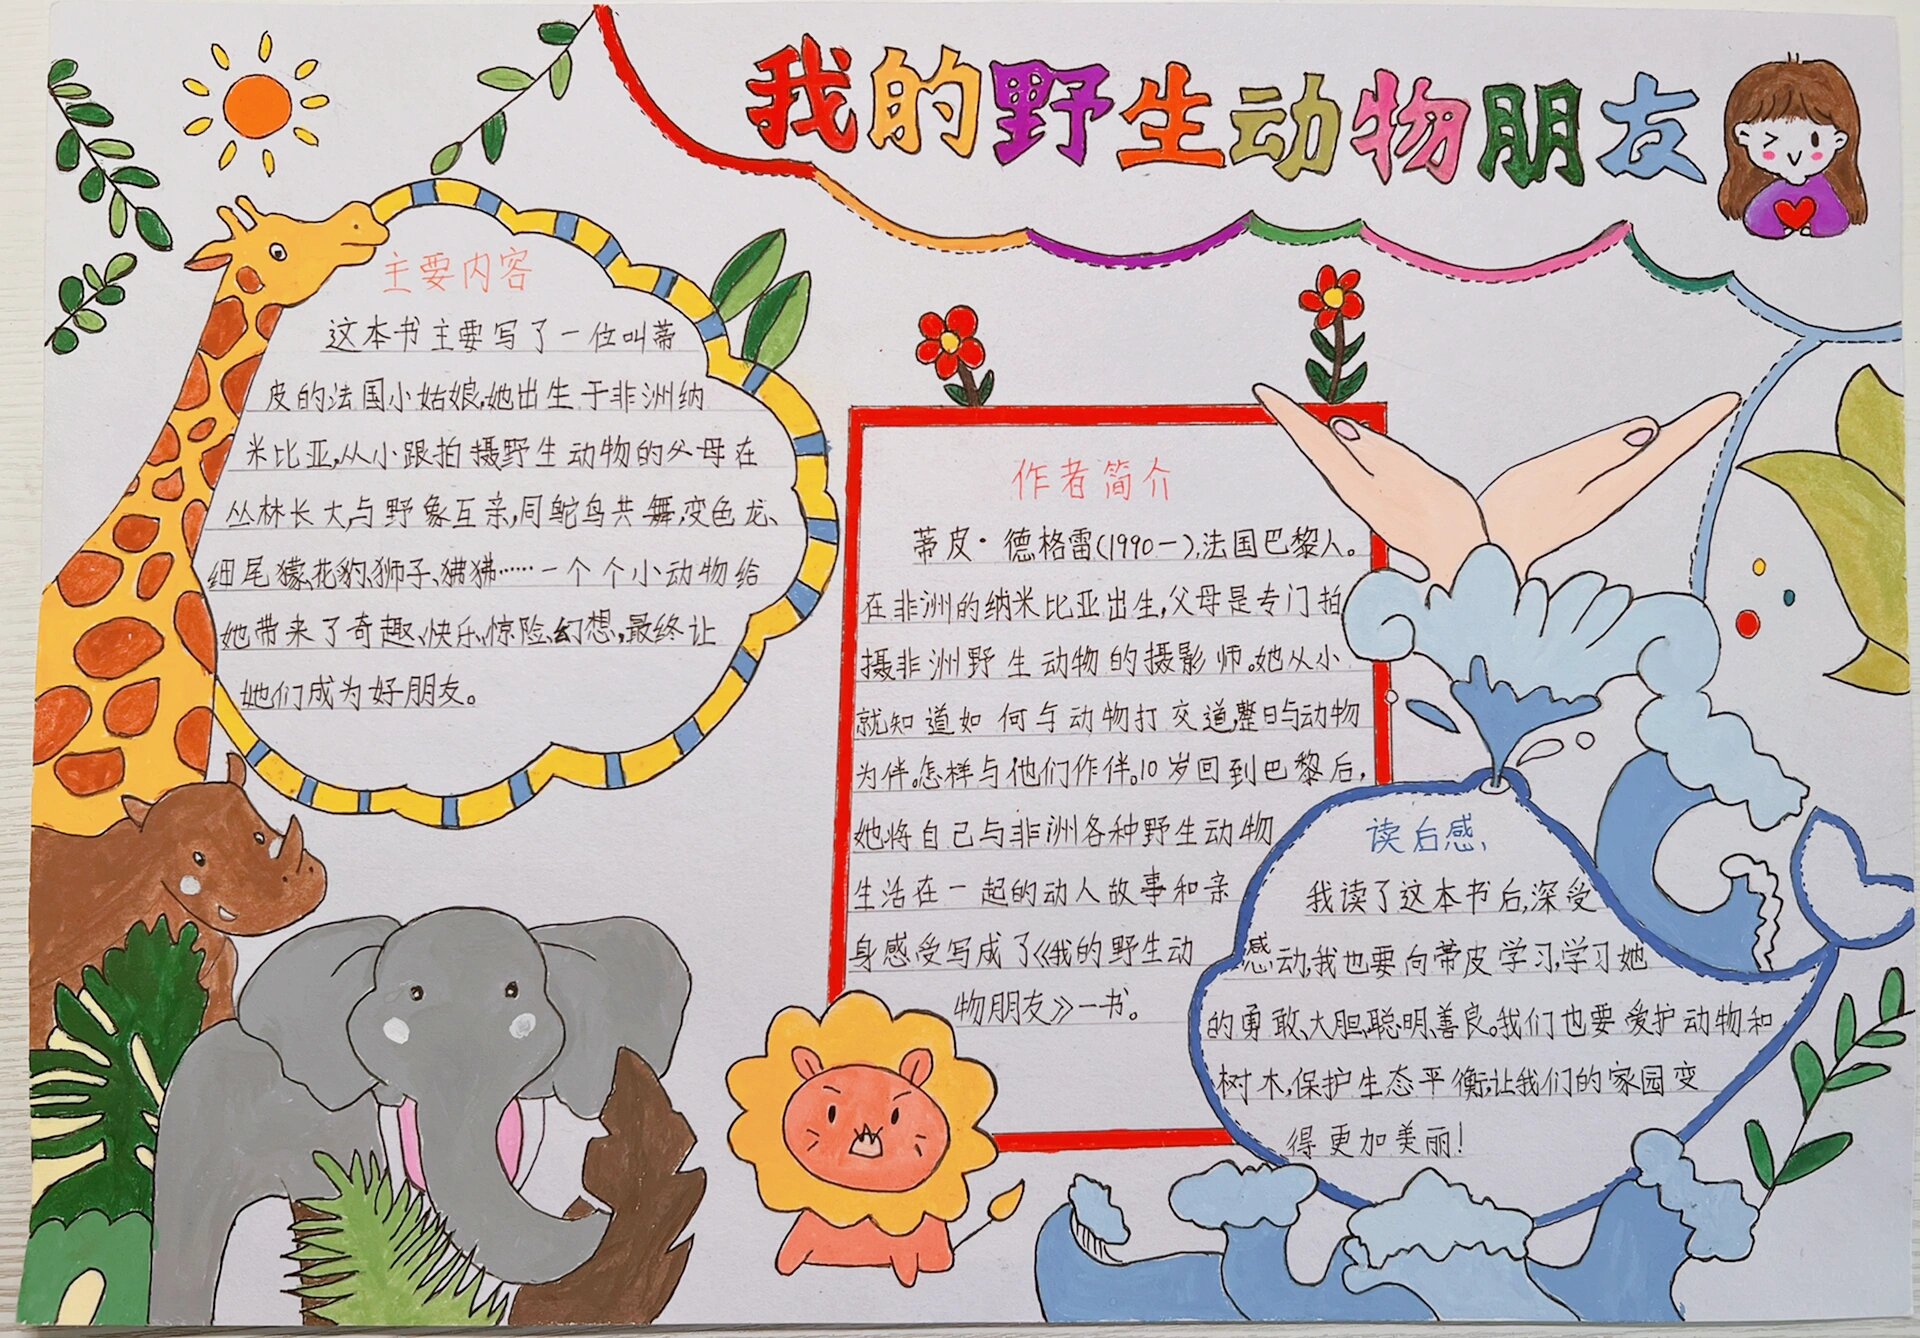 我的野生动物朋友
主要内容
这本书主要写了一位叫蒂
皮的法国小姑娘,她出生于非洲纳
米比亚,从小跟拍摄野生动物的父母在
丛林长大,与野象互亲,同鸵鸟共舞,变色龙、
细尾獴、花豹、狮子、狒狒……一个个小动物给
她带来了奇趣、快乐、惊险、幻想,最终让
她们成为好朋友。
作者简介
蒂皮·德格雷(1990一),法国巴黎人。
在非洲的纳米比亚出生,父母是专门拍
摄非洲野生动物的摄影师。她从小
就知道如何与动物打交道,整日与动物
为伴。怎样与他们作伴。10岁回到巴黎后,
她将自己与非洲各种野生动物
生活在一起的动人故事和亲
身感受写成了《我的野生动
物朋友》一书。
读后感,
我读了这本书后,深受
感动,我也要向蒂皮学习,学习她
的勇敢、大胆、聪明、善良。我们也要爱护动物和
树木,保护生态平衡,让我们的家园变
得更加美丽!